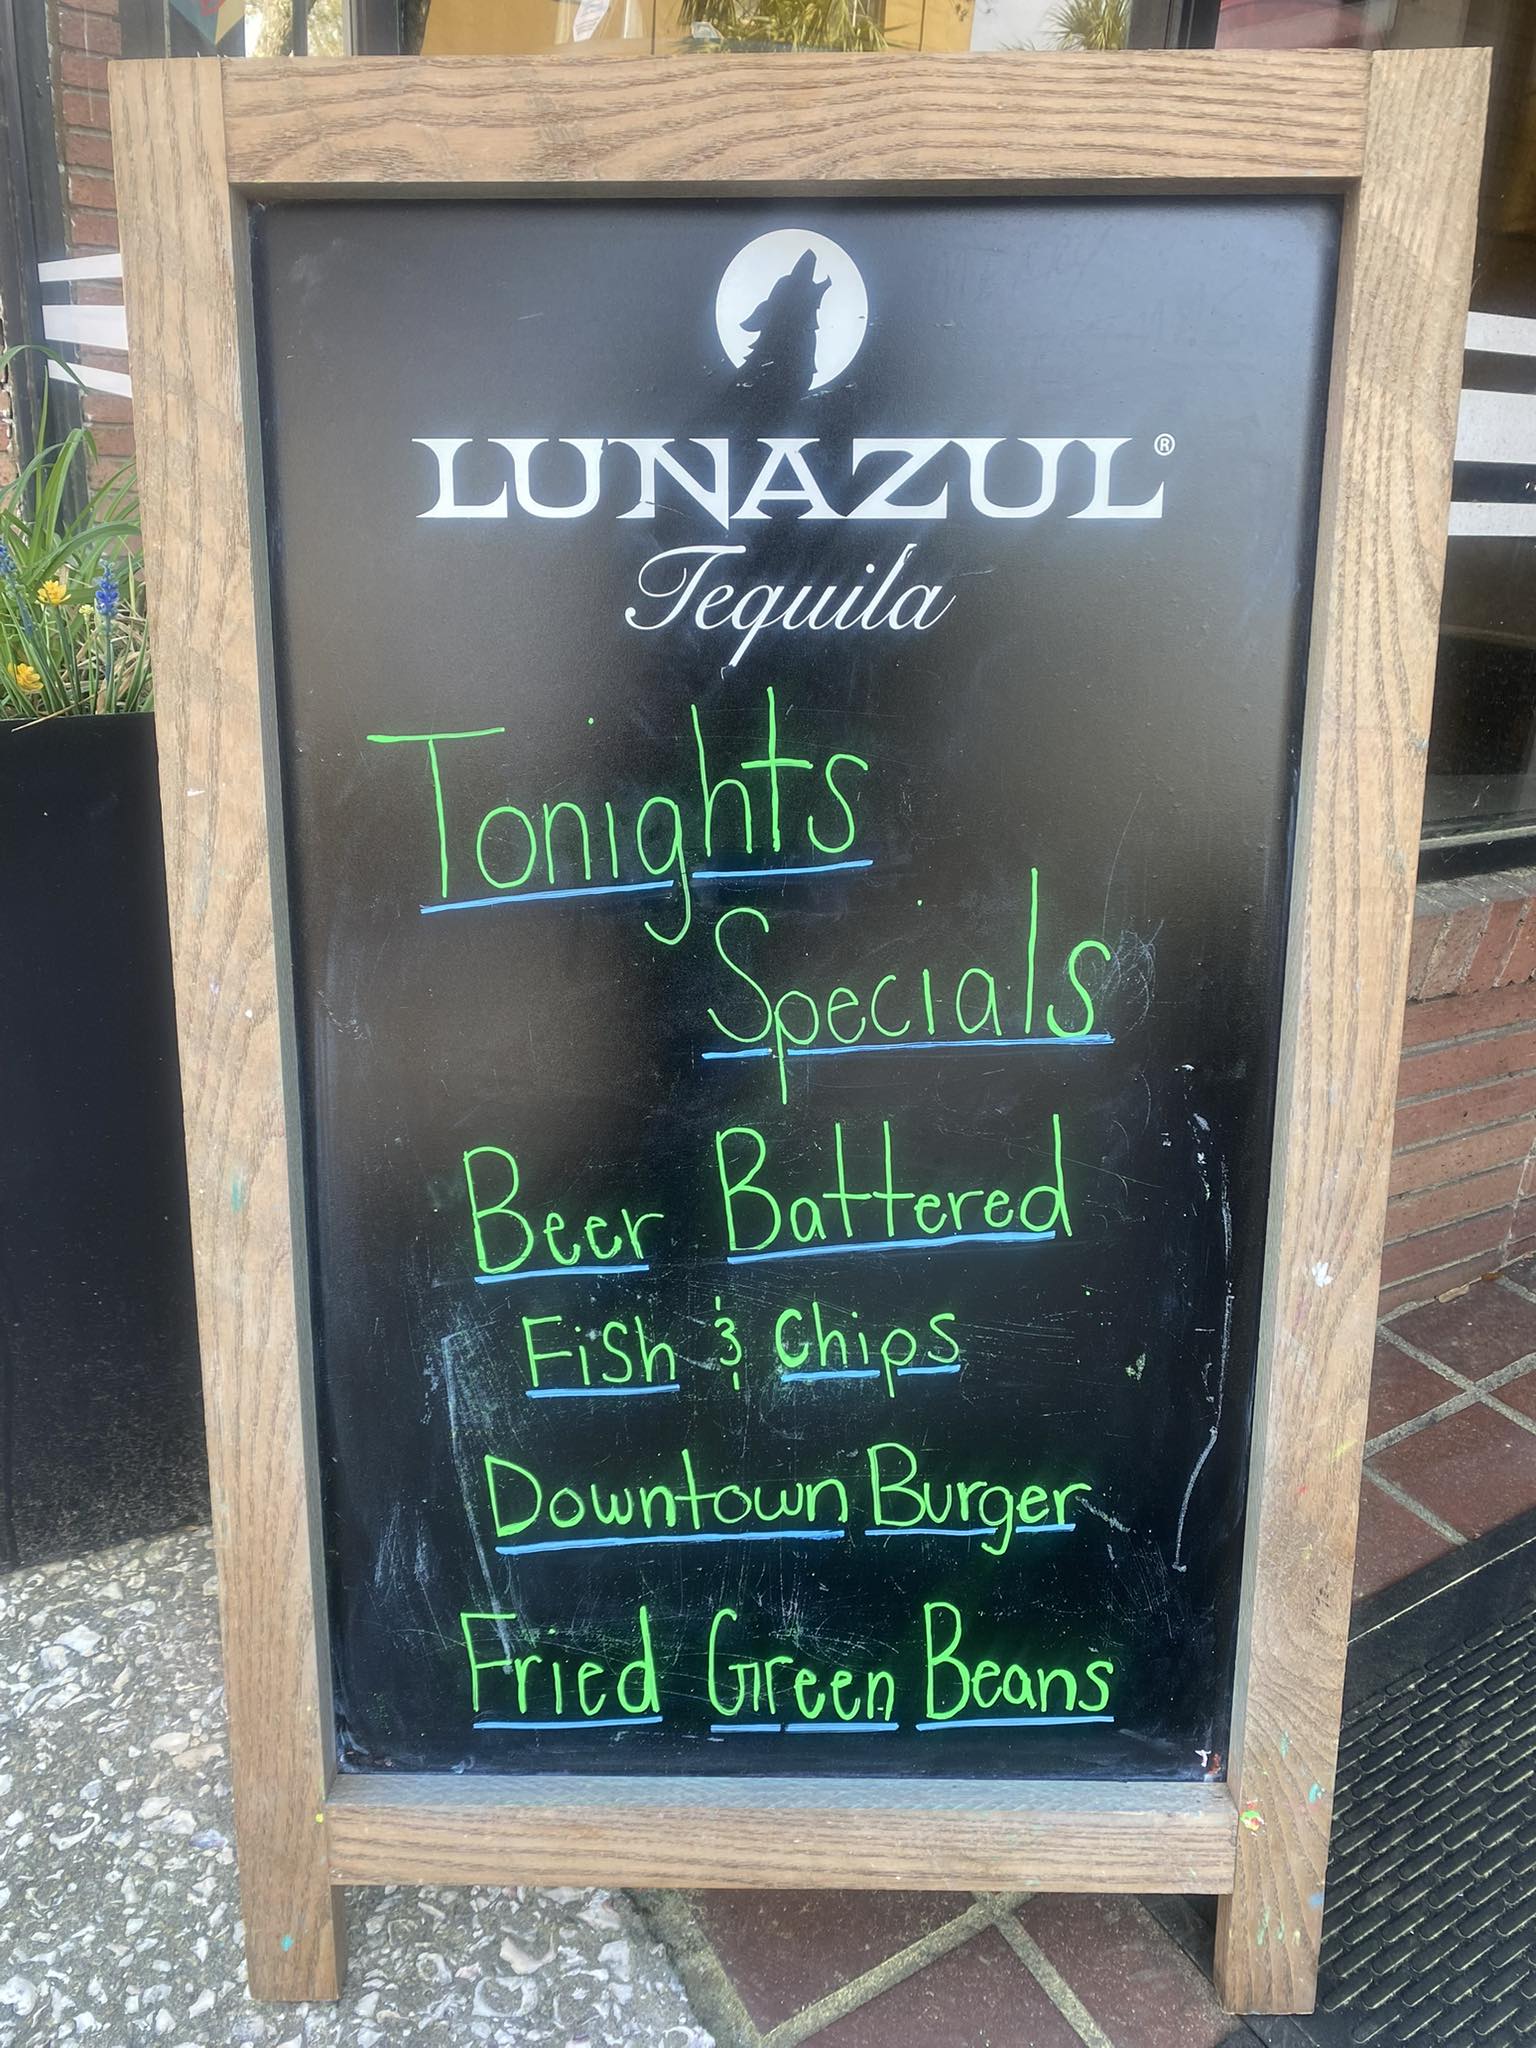 LUNAZUL®
Tequila
Tonights
Specials
Beer Battered
Fish & Chips
Downtown Burger
Fried Green Beans